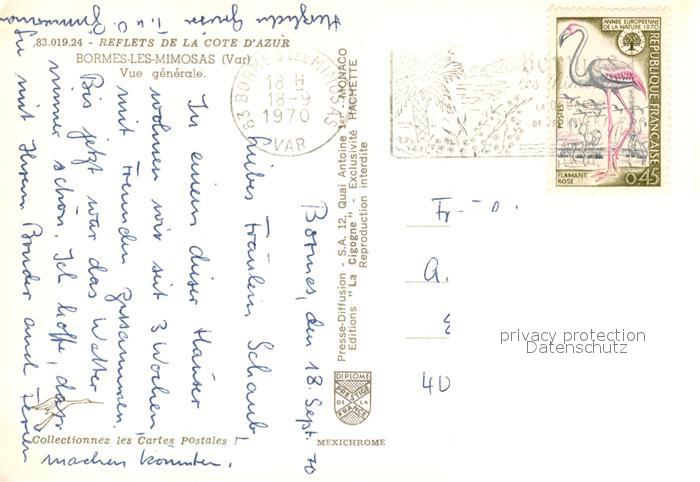 83.019.24 - REFLETS DE LA COTE D'AZUR
BORMES-LES-MIMOSAS (Var)
Vue générale.
83 BORMES LES MIMOSAS
18 H
18-9
1970
VAR
ANNÉE EUROPÉENNE
DE LA NATURE 1970
RÉPUBLIQUE FRANÇAISE
POSTES
FLAMANT
ROSE
0,45
Bormes, den 18. Sept. 70
Liebes Fräulein Schaub,
In einem dieser Häuser
wohnen wir seit 3 Wochen
mit Freunden zusammen.
Bis jetzt war das Wetter
immer schön. Ich hoffe, dass
Sie mit Ihrem Bruder auch Ferien
machen konnten.
Herzliche Grüsse
Presse-Diffusion - S.A. 12, Quai Antoine 1er - MONACO
Editions "La Cigogne" - Exclusivité HACHETTE
Reproduction interdite
DIPLOME
PRESTIGE
DE LA
FRANCE
MEXICHROME
Collectionnez les Cartes Postales !
privacy protection
Datenschutz